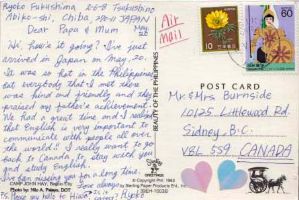 Ryoko Fukushima 2-6-8 Tsukushino
Abiko-shi, Chiba, 270-11 JAPAN
Dear Papa & Mum May
Hi, how's it going? I've just
arrived in Japan on May, 20.
It was so hot in the Philippines
but everybody that I met there
was kind and friendly and they
praised my father's achievement.
We had a great time and I realized
that English is very important to
communicate with people all over
the world! I really want to go
back to Canada, to stay with you
and study English.
I've been missing you for a long time.
Love always
CAMP JOHN HAY, Baguio City
Photo by
P.S. Please say hello to
Ryoko
Air
Mail
BEAUTY OF THE PHILIPPINES
10
60
POST CARD
Mr & Mrs Burnside
10125 Littlewood Rd.
Sidney, B.C.
V8L 5S9 CANADA